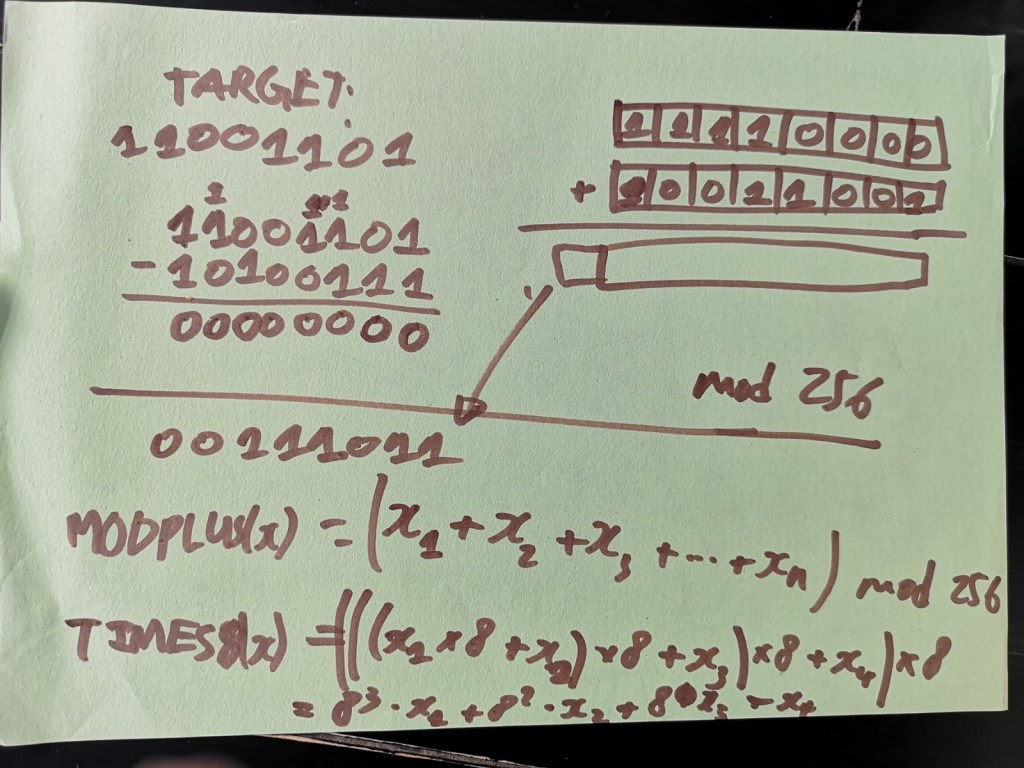 TARGET:
11001101
11001101
- 10100111
00000000
11110000
+ 10011001
mod 256
00111011
MODPLUS(x) = (x₁ + x₂ + x₃ + ... + xₙ) mod 256
TIMES8(x) = (((x₁ × 8 + x₂) × 8 + x₃) × 8 + x₄) × 8
= 8³ · x₁ + 8² · x₂ + 8 x₃ + x₄